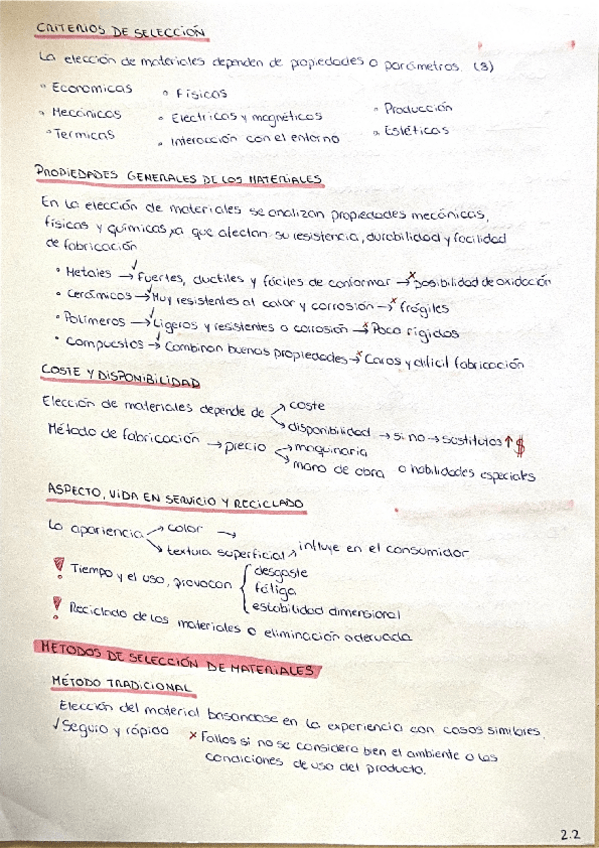 CRITERIOS DE SELECCIÓN
La elección de materiales dependen de propiedades o parámetros. (3)
• Economicas • Físicas • Producción
• Mecánicas • Electricas y magnéticas • Estéticas
• Termicas • Interacción con el entorno
PROPIEDADES GENERALES DE LOS MATERIALES
En la elección de materiales se analizan propiedades mecánicas,
físicas y químicas, ya que afectan su resistencia, durabilidad y facilidad
de fabricación
• Metales → ✓ Fuertes, ductiles y fáciles de conformar → x posibilidad de oxidación
• Cerámicos → ✓ Muy resistentes al calor y corrosión → x frágiles
• Polímeros → ✓ Ligeros y resistentes a corrosión → x Poco rigidos
• Compuestos → ✓ Combinan buenas propiedades → x Caros y dificil fabricación
COSTE Y DISPONIBILIDAD
Elección de materiales depende de → coste
→ disponibilidad → si no → sustitutos ↑ $
Método de fabricación → precio → maquinaria
→ mano de obra o habilidades especiales
ASPECTO, VIDA EN SERVICIO Y RECICLADO
La apariencia → color →
→ textura superficial → influye en el consumidor
! Tiempo y el uso, provocan { desgaste
fátiga
estabilidad dimensional
! Reciclado de los materiales o eliminación adecuada
METODOS DE SELECCIÓN DE MATERIALES
MÉTODO TRADICIONAL
Elección del material basandose en la experiencia con casos similares.
✓ Seguro y rápido x Fallos si no se considera bien el ambiente o las
condiciones de uso del producto.
2.2